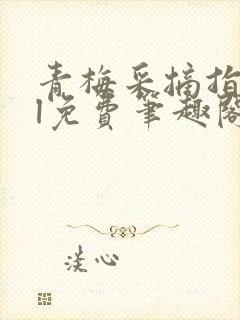 青梅采摘指
l免费笔趣阁
淡心